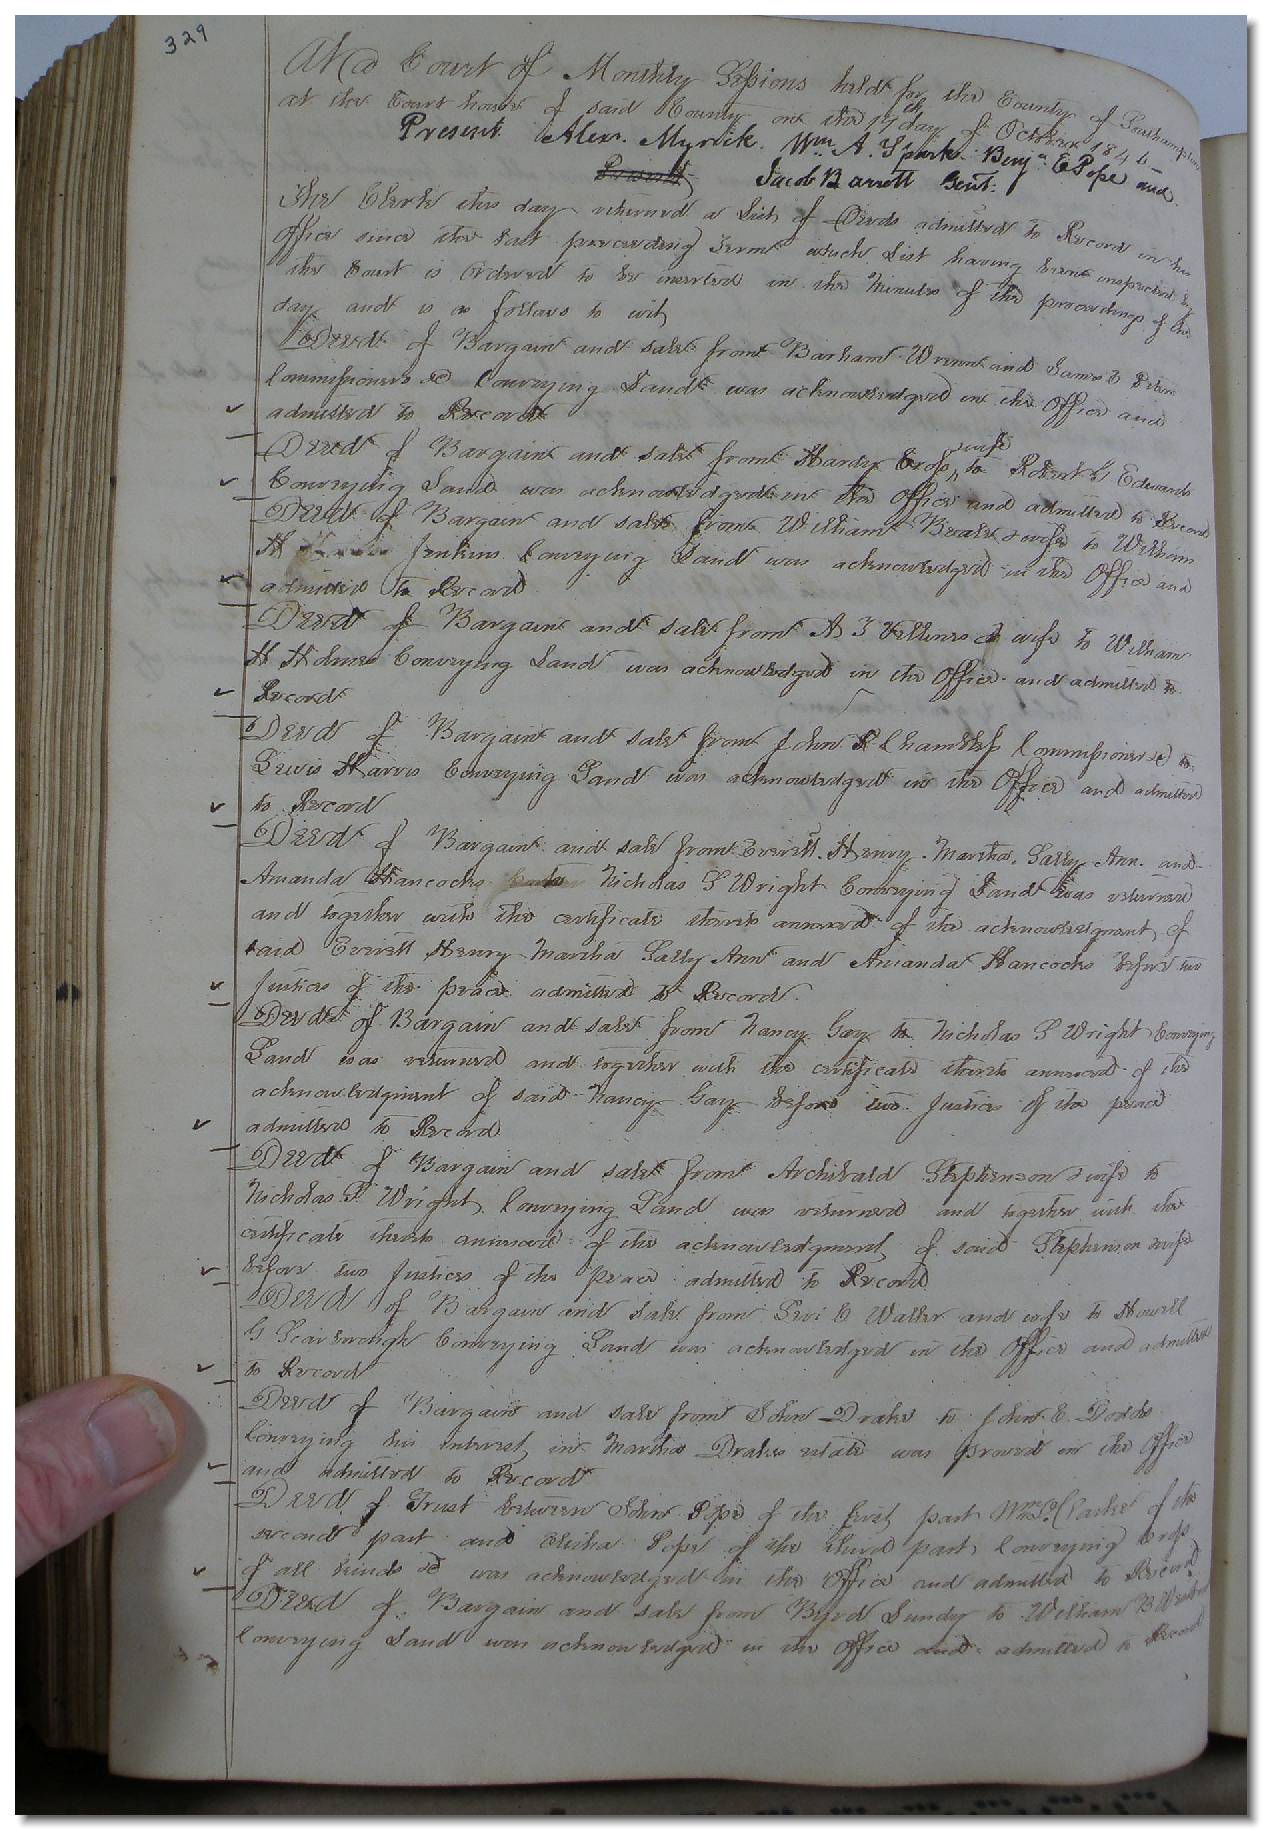 329
At a Court of Monthly Sessions held for the County of Southampton
at the Court house of said County on the 17th day of October 184
Present Alexr. Myrick. Wm A. Spark Benjn E Pope and
Present Jacob Barrett Gent.
The Clerk this day returned a List of Deeds admitted to Record in his
Office since the last preceeding Term which List having been inspected by
the Court is Ordered to be inserted in the Minutes of the proceedings of the
day and is as follows to wit
Deed of Bargain and sale from Barham Wrenn and James D
Commissioners &c Conveying Land was acknowledged in the Office and
admitted to Record
Deed of Bargain and sale from Hardy Cross wife to Robert G Edwards
Conveying Land was acknowledged in the Office and admitted to Record
Deed of Bargain and sale from William Beale & wife to William
H Jenkins Conveying Land was acknowledged in the Office and
admitted to Record
Deed of Bargain and sale from A J & wife to William
H Holmes Conveying Land was acknowledged in the Office and admitted to
Record
Deed of Bargain and sale from John R Chambliss Commissioner &c to
Lewis Harris Conveying Land was acknowledged in the Office and admitted
to Record
Deed of Bargain and sale from Everett, Henry, Martha, Sally Ann. and
Amanda Hancocks to Nicholas S Wright Conveying Land was returned
and together with the certificate thereto annexed of the acknowledgment of
said Everett Henry Martha Sally Ann and Amanda Hancocks before two
Justices of the peace admitted to Record.
Deed of Bargain and sale from Nancy Gay to Nicholas S Wright Conveying
Land was returned and together with the certificate thereto annexed of the
acknowledgment of said Nancy Gay before two Justices of the peace
admitted to Record
Deed of Bargain and sale from Archibald Stephenson & wife to
Nicholas S Wright Conveying Land was returned and together with the
certificate thereto annexed of the acknowledgment of said Stephenson & wife
before two Justices of the peace admitted to Record
Deed of Bargain and sale from Levi C Waller and wife to Howell
G Scarborough Conveying Land was acknowledged in the Office and admitted
to Record
Deed of Bargain and sale from John Drake to John E. Dodds
Conveying his interest in Martha Drakes estate was proved in the Office
and admitted to Record
Deed of Trust between John Pope of the first part Wm S. Clarke of the
second part and Elisha Pope of the third part, Conveying crops
of all kinds &c was acknowledged in the Office and admitted to Record
Deed of Bargain and sale from Byrd Lundy to William B
Conveying Land was acknowledged in the Office and admitted to Record